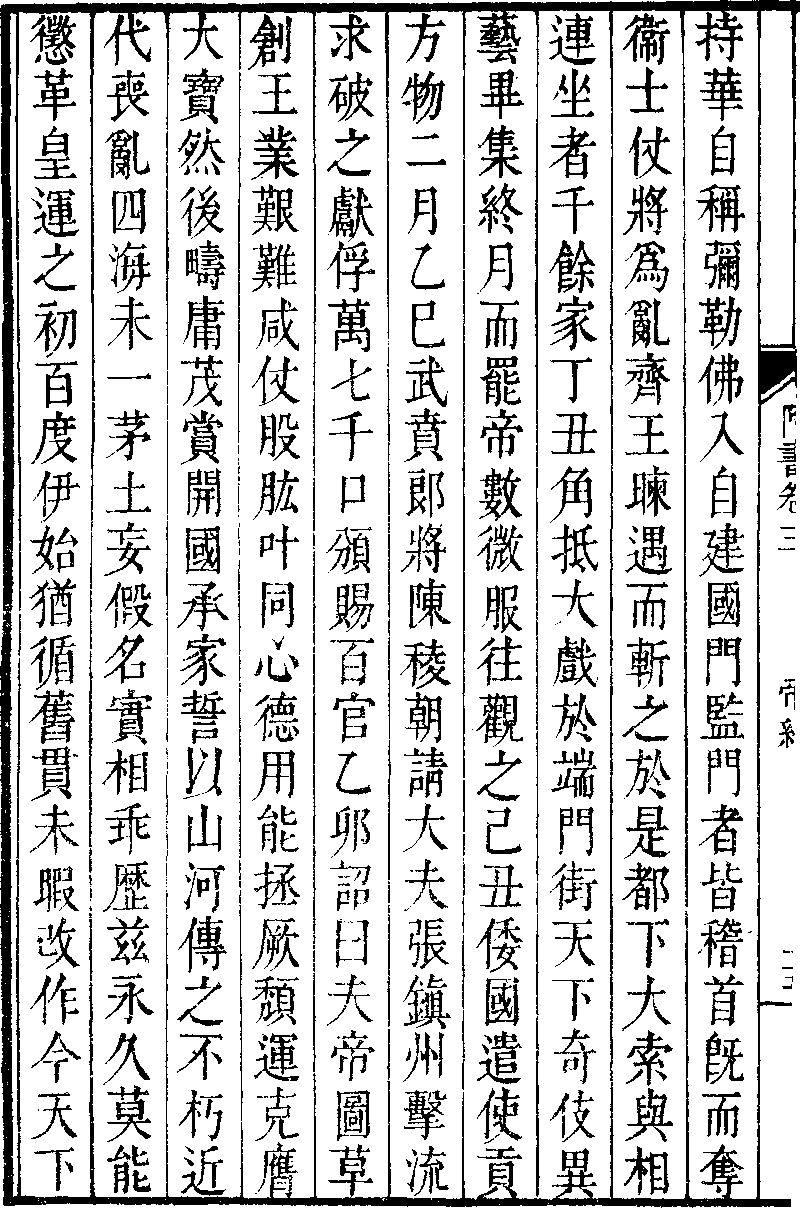 持華自稱彌勒佛入自建國門監門者皆稽首旣而奪
衞士仗將爲亂齊王暕遇而斬之於是都下大索與相
連坐者千餘家丁丑角抵大戲於端門街天下奇伎異
藝畢集終月而罷帝數微服往觀之己丑倭國遣使貢
方物二月乙巳武賁郎將陳稜朝請大夫張鎮州擊流
求破之獻俘萬七千口頒賜百官乙卯詔曰夫帝圖草
創王業艱難咸仗股肱叶同心德用能拯厥頹運克膺
大寶然後疇庸茂賞開國承家誓以山河傳之不朽近
代喪亂四海未一茅土妄假名實相乖歷茲永久莫能
懲革皇運之初百度伊始猶循舊貫未暇改作今天下